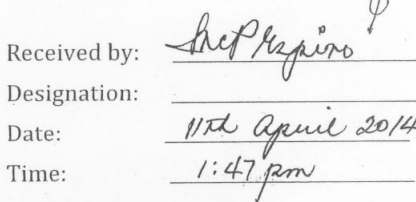 Received by:
Designation:
Date: 11th April 2014
Time: 1:47 pm